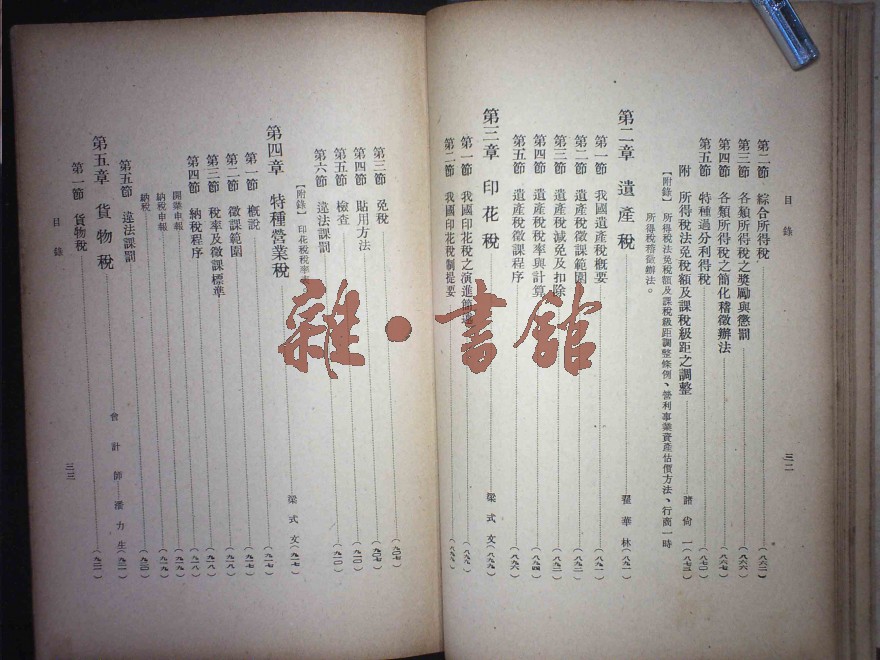 目錄
三二
第二節 綜合所得稅 (八六二)
第三節 各類所得稅之獎勵與懲罰 (八六六)
第四節 各類所得稅之簡化稽徵辦法 (八六七)
第五節 特種過分利得稅 (八七〇)
附 所得稅法免稅額及課稅級距之調整 諸尙一(八七三)
【附錄】所得稅法免稅額及課稅級距調整條例、營利事業資產估價方法、行商一時
所得稅稽徵辦法。
第二章 遺產稅 翟華林(八九一)
第一節 我國遺產稅概要 (八九一)
第二節 遺產稅徵課範圍 (八九二)
第三節 遺產稅減免及扣除 (八九二)
第四節 遺產稅稅率與計算 (八九四)
第五節 遺產稅徵課程序 (八九六)
第三章 印花稅 梁式文(八九九)
第一節 我國印花稅之演進簡
第二節 我國印花稅制提要
第三節 免稅 (九〇七)
第四節 貼用方法
第五節 檢查 (九一〇)
第六節 違法課罰
【附錄】印花稅稅率
第四章 特種營業稅 梁式文(九一七)
第一節 概說 (九一七)
第二節 徵課範圍 (九一八)
第三節 稅率及徵課標準 (九一八)
第四節 納稅程序 (九一八)
開業申報 (九一九)
納稅申報 (九一九)
納稅 (九二〇)
第五節 違法課罰
第五章 貨物稅 會計師 潘力生
第一節 貨物稅
目錄
三三
雜・書館